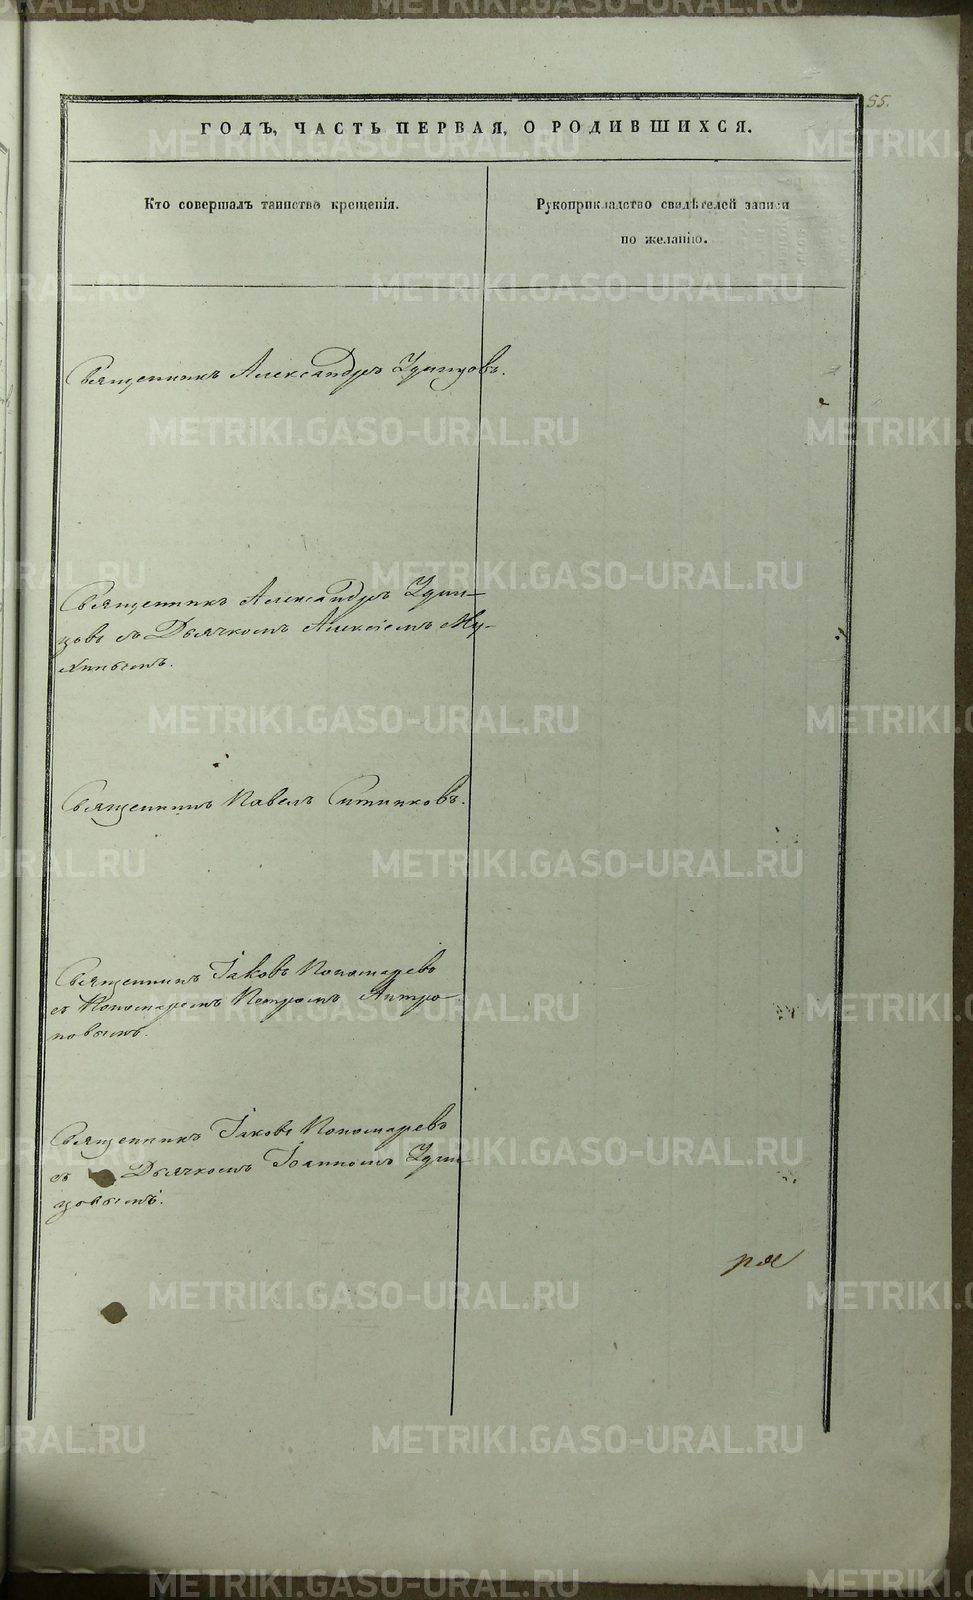 55.
ГОДЪ, ЧАСТЬ ПЕРВАЯ, О РОДИВШИХСЯ.
Кто совершалъ таинство крещенія.
Рукоприкладство свидѣтелей записи
по желанію.
Священникъ Александръ Удинцовъ.
Священникъ Александръ Удин-
цовъ съ Дьячкомъ Алексіемъ Му-
хинымъ.
Священникъ Павелъ Ситниковъ.
Священникъ Іаковъ Пономаревъ
съ Пономаремъ Петромъ Антро
повымъ.
Священникъ Іаковъ Пономаревъ
съ Дьячкомъ Іоанномъ Удин
цовымъ.
METRIKI.GASO-URAL.RU